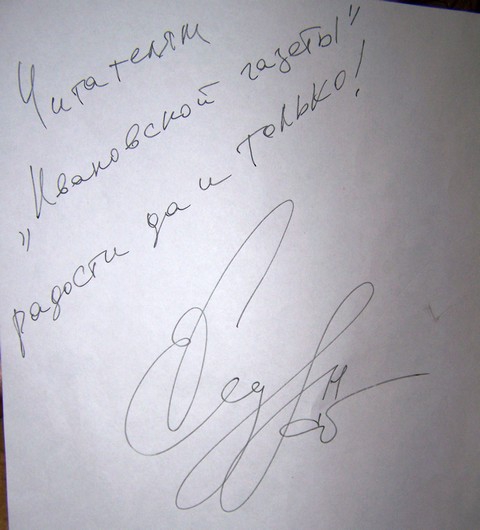 Читателям
„Ивановской газеты"
радости да и только!